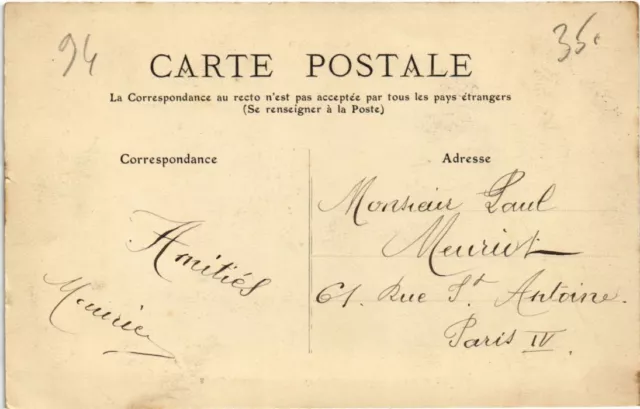 94
35c
CARTE POSTALE
La Correspondance au recto n'est pas acceptée par tous les pays étrangers
(Se renseigner à la Poste)
Correspondance
Amitiés
Maurice
Adresse
Monsieur Paul
Meuriot
61. Rue St Antoine.
Paris IV